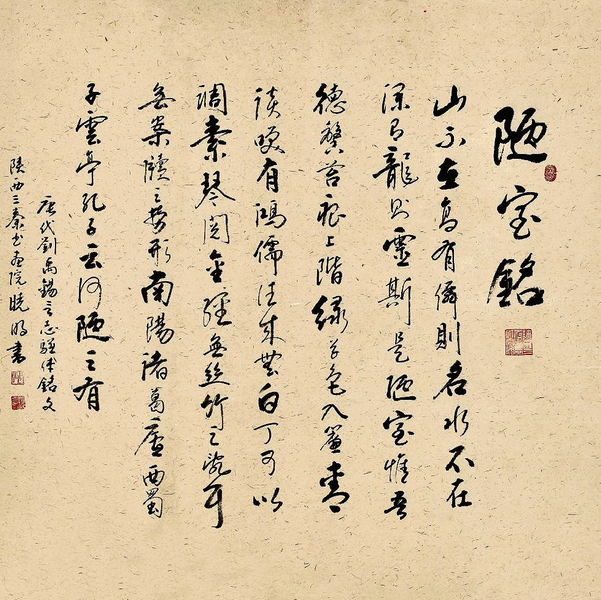 陋室銘
山不在高有僊則名水不在
深有龍則靈斯是陋室惟吾
德馨苔痕上階緑草色入簾青
談咲有鴻儒往来無白丁可以
調素琴閱金經無絲竹之亂耳
無案牘之勞形南陽諸葛廬西蜀
子雲亭孔子云何陋之有
唐代劉禹錫言志駢体銘文
陝西三秦書画院曉明書